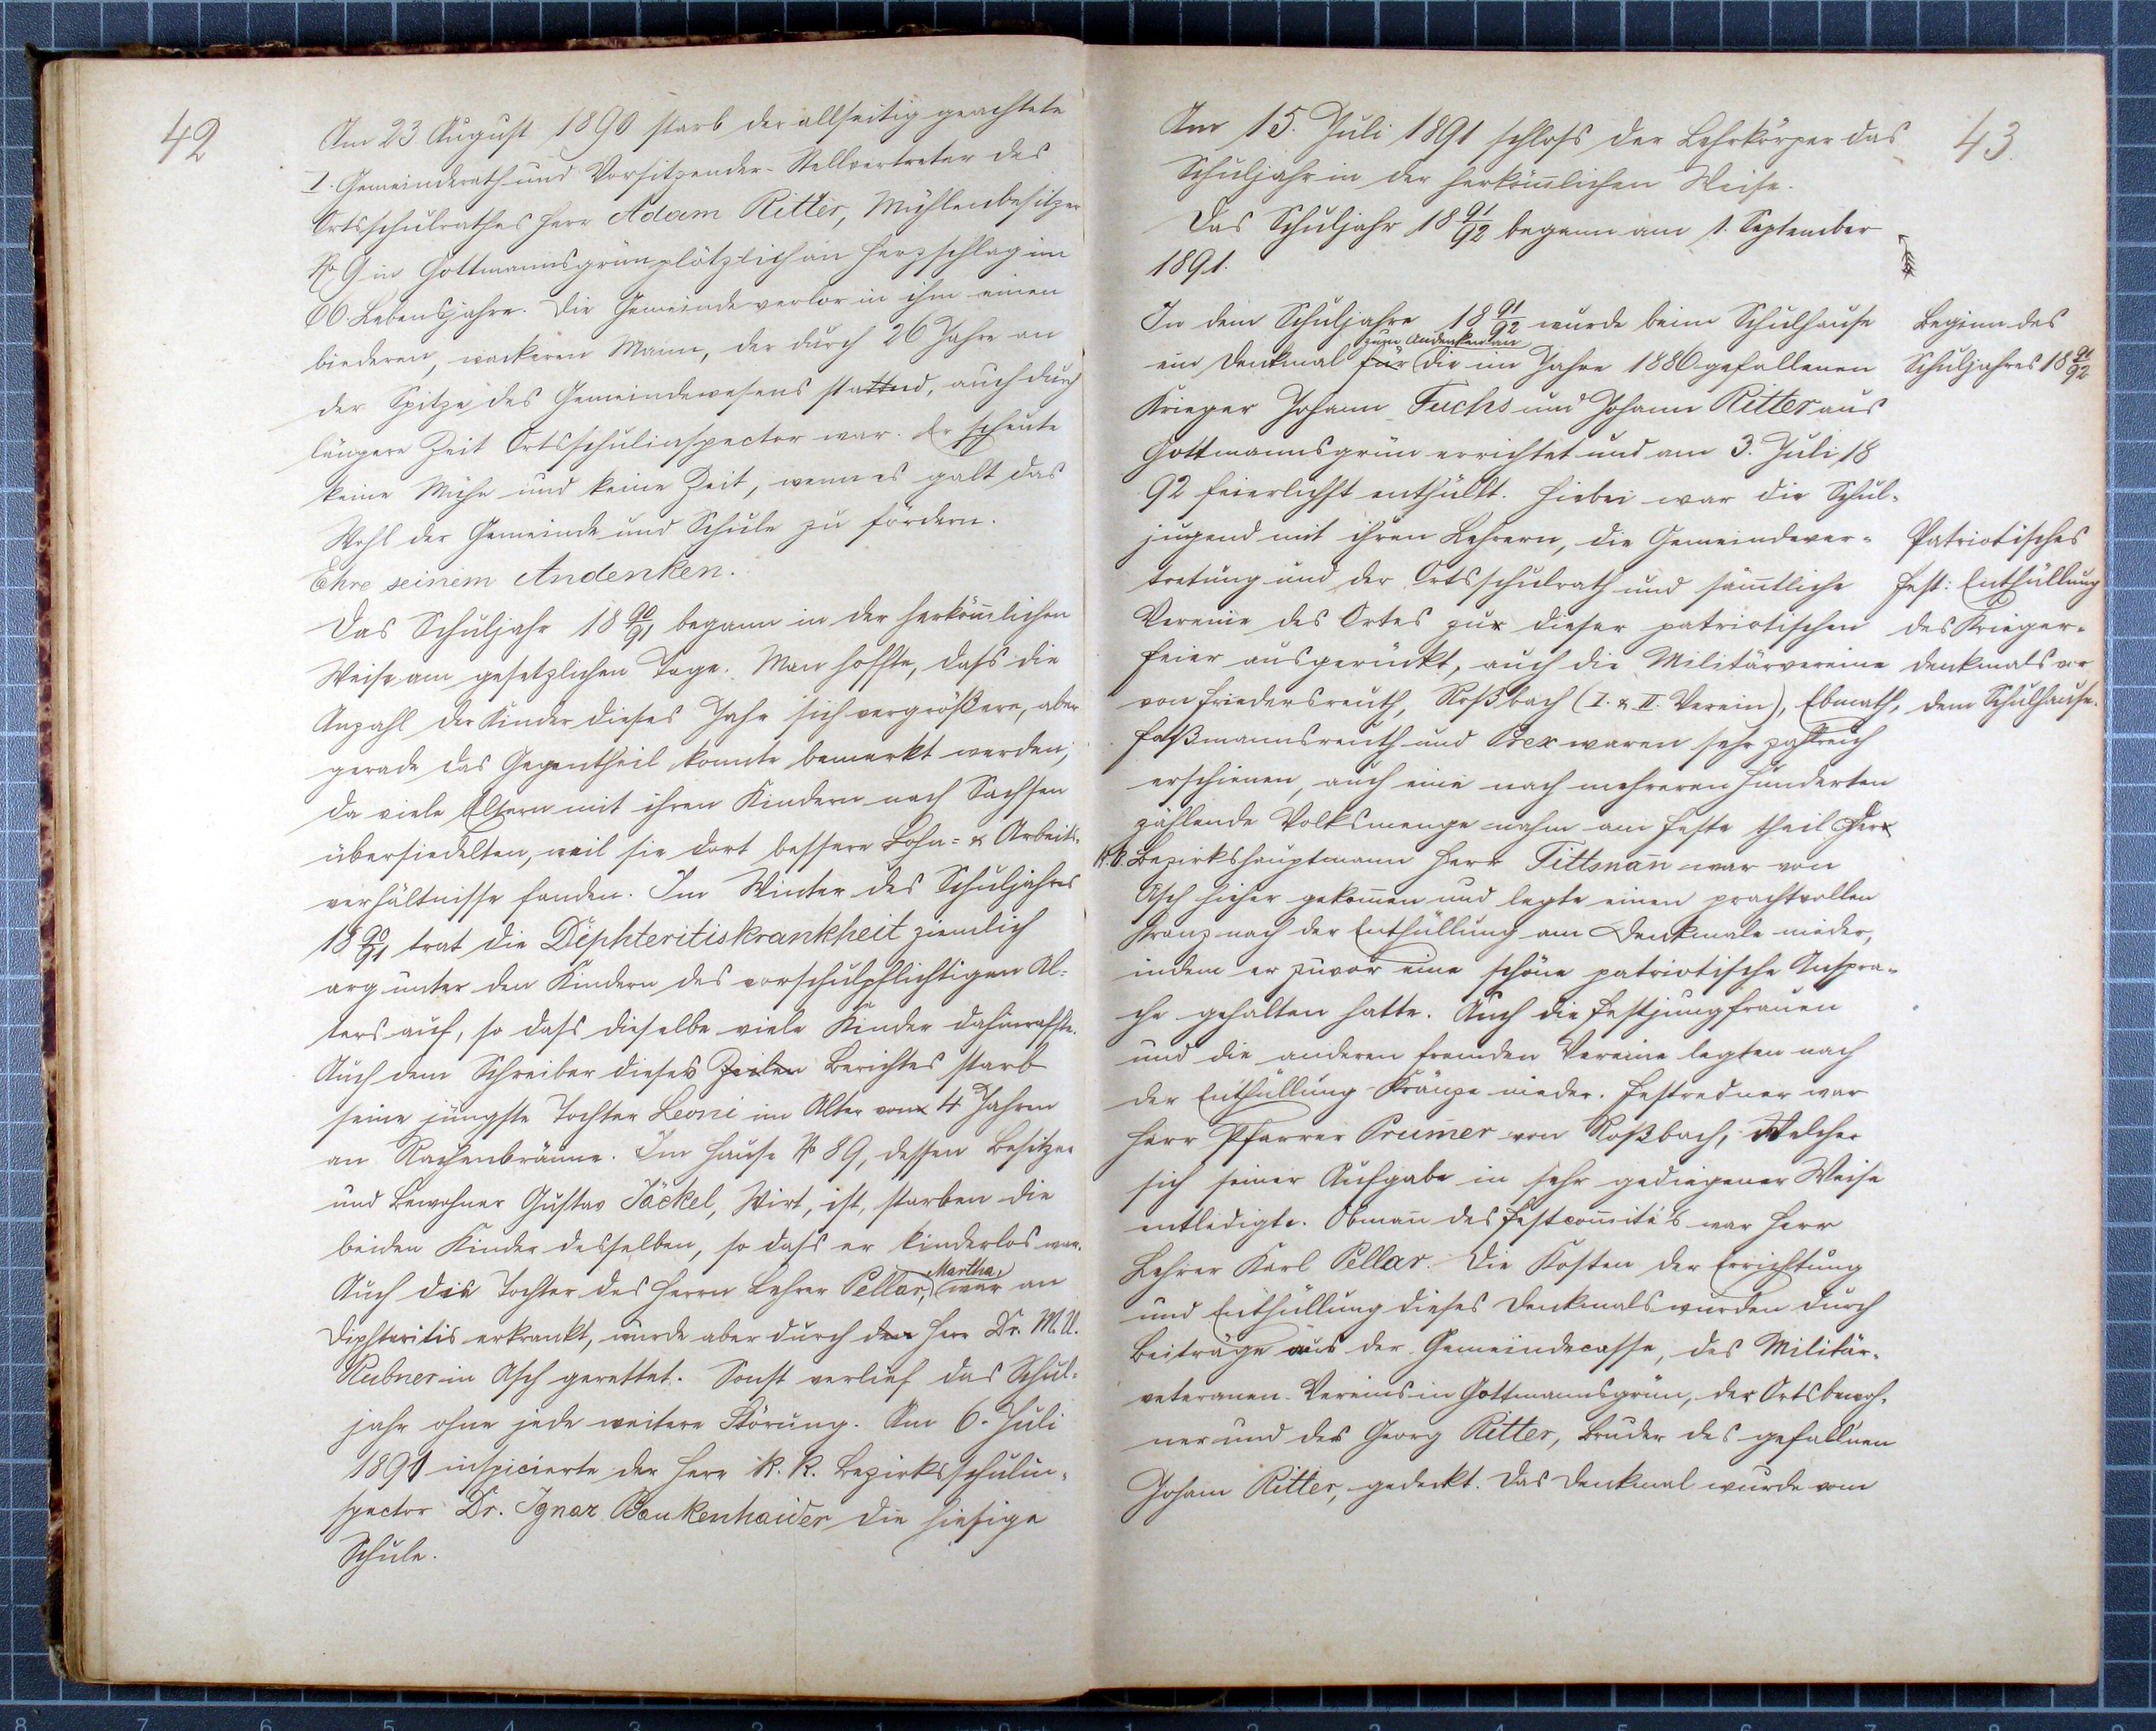 42
Am 23 August 1890 starb der allseitig geachtete
I. Gemeinderath und Vorsitzender-Stellvertreter des
Ortsschulrathes Herr Adam Ritter, Mühlenbesitzer
No 9 in Gottmannsgrün plötzlich an Herzschlag im
66. Lebensjahre. Die Gemeinde verlor in ihm einen
biederen, wackeren Mann, der durch 26 Jahre an
der Spitze des Gemeindewesens stand, auch durch
längere Zeit Ortsschulinspector war. Er scheute
keine Mühe und keine Zeit, wenn es galt das
Wohl der Gemeinde und Schule zu fördern.
Ehre seinem Andenken.
Das Schuljahr 18 90/91 begann in der herkom̄lichen
Weise am gesetzlichen Tage. Man hoffte, dass die
Anzahl der Kinder dieses Jahr sich vergrößere, aber
gerade das Gegentheil konnte bemerkt werden,
da viele Eltern mit ihren Kindern nach Sachsen
übersiedelten, weil sie dort bessere Lohn- & Arbeits-
verhältnisse fanden. Im Winter des Schuljahres
18 90/91 trat die Diphteritiskrankheit ziemlich
arg unter den Kindern des vorschulpflichtigen Al-
ters auf, so dass dieselbe viele Kinder dahinraffte.
Auch dem Schreiber dieses Zeilen Berichtes starb
seine jüngste Tochter Leoni im Alter von 4 Jahren
an Rachenbräune. Im Hause No 89, dessen Besitzer
und Bewohner Gustav Jäckel, Wirt, ist, starben die
beiden Kinder desselben, so dass er kinderlos war.
Auch die Tochter des Herrn Lehrer Pellar, Martha, war an
Diphteritis erkrankt, wurde aber durch den Herr Dr. M. U.
Rubner in Asch gerettet. Sonst verlief das Schul-
jahr ohne jede weitere Störung. Am 6. Juli
1891 inspicierte der Herr k. k. Bezirksschulin-
spector Dr. Ignaz Baukenhaider die hiesige
Schule.
43
Am 15. Juli 1891 schloss der Lehrkörper das
Schuljahr in der herkom̄lichen Weise.
Das Schuljahr 18 91/92 begann am 1. September
1891.
In dem Schuljahre 18 91/92 wurde beim Schulhause
ein Denkmal für zum Andenken an die im Jahre 1886 gefallenen
Krieger Johann Fuchs und Johann Ritter aus
Gottmannsgrün errichtet und am 3. Juli 18
92 feierlichst enthüllt. Hiebei war die Schul-
jugend mit ihren Lehrern, die Gemeindever-
tretung und der Ortsschulrath und sam̄tliche
Vereine des Ortes zur dieser patriotischen
Feier ausgerückt, auch die Militärvereine
von Friedersreuth, Roßbach (I. & II. Verein), Ebmath,
Faßmannsreuth und Prex waren sehr zahlreich
erschienen, auch eine nach mehreren Hunderten
zählende Volksmenge nahm am Feste theil. Der
k. k. Bezirkshauptmann Herr Tittman̄ war von
Asch hieher gekom̄en und legte einen prachtvollen
Kranz nach der Enthüllung am Denkmale nieder,
indem er zuvor eine schöne patriotische Anspra-
che gehalten hatte. Auch die Festjungfrauen
und die anderen fremden Vereine legten nach
der Enthüllung Kränze nieder. Festredner war
Herr Pfarrer Prum̄er von Roßbach, welcher
sich seiner Aufgabe in sehr gediegener Weise
entledigte. Obman̄ des Festcom̄ité's war Herr
Lehrer Karl Pellar. Die Kosten der Errichtung
und Enthüllung dieses Denkmals wurden durch
Beiträge aus der Gemeindecasse, des Militär-
veteranen-Vereins in Gottmannsgrün, der Ortsbewoh-
ner und des Georg Ritter, Bruder des gefallnen
Johann Ritter, gedeckt. Das Denkmal wurde vom
Beginn des
Schuljahres 18 91/92
Patriotisches
Fest: Enthüllung
des Krieger-
denkmals vor
dem Schulhause.